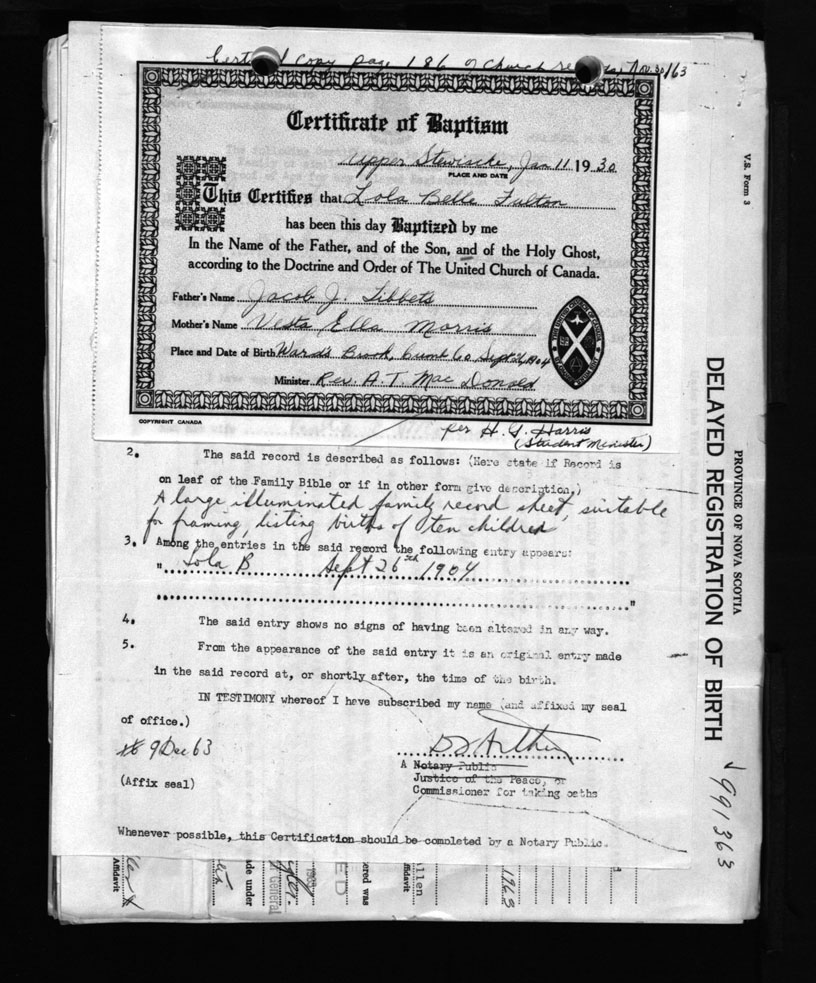 Certified copy page 186 of Church records Nov 30/63
Certificate of Baptism
Upper Stewiacke, Jan 11 1930
PLACE AND DATE
This Certifies that Lola Belle Fulton
has been this day Baptized by me
In the Name of the Father, and of the Son, and of the Holy Ghost,
according to the Doctrine and Order of The United Church of Canada.
Father's Name Jacob J. Tibbets
Mother's Name Vesta Ella Morris
Place and Date of Birth Ward's Brook, Cumb Co Sept 26, 1904
Minister Rev. A. T. Mac Donald
COPYRIGHT CANADA
per H. G. Harris
(Student Minister)
2. The said record is described as follows: (Here state if Record is
on leaf of the Family Bible or if in other form give description.)
A large illuminated family record sheet, suitable
for framing, listing births of ten children
3. Among the entries in the said record the following entry appears:
" Lola B Sept 26th 1904
"
4. The said entry shows no signs of having been altered in any way.
5. From the appearance of the said entry it is an original entry made
in the said record at, or shortly after, the time of the birth.
IN TESTIMONY whereof I have subscribed my name (and affixed my seal
of office.)
9 Dec 63
A Notary Public
(Affix seal)
Justice of the Peace, or
Commissioner for taking oaths
Whenever possible, this Certification should be completed by a Notary Public.
V.S. Form 3
PROVINCE OF NOVA SCOTIA
DELAYED REGISTRATION OF BIRTH
991363
Affidavit
de under
General
ered was
Affidavit
allen
1963